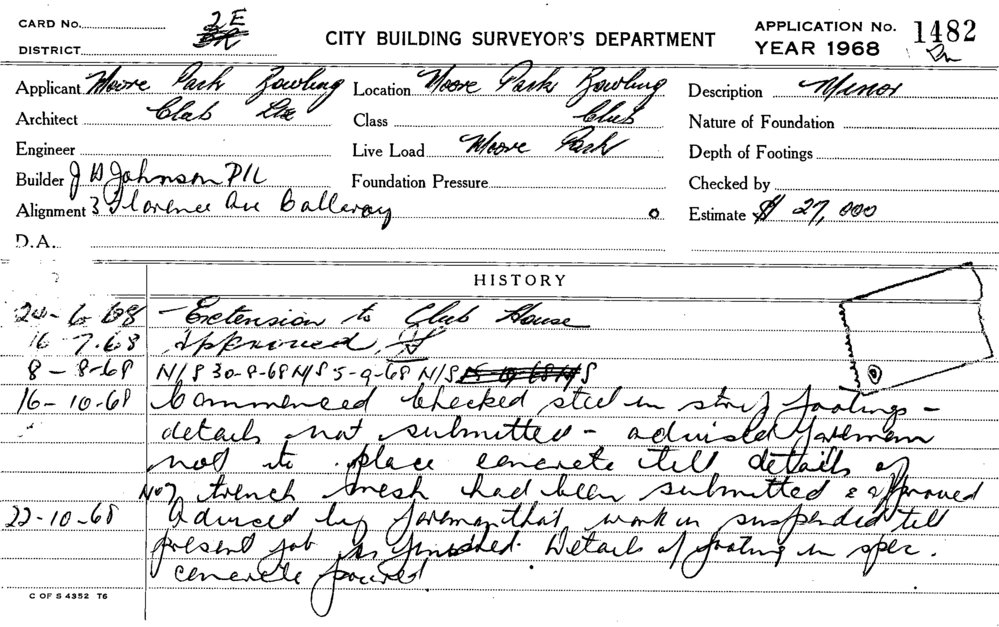 CARD No. 2E
DISTRICT
CITY BUILDING SURVEYOR'S DEPARTMENT
APPLICATION No. 1482
YEAR 1968
Applicant Moore Park Bowling
Location Moore Park Bowling
Description Minor
Architect Club Ltd
Class Club
Nature of Foundation
Engineer
Live Load Moore Park
Depth of Footings
Builder J D Johnson P/L
Foundation Pressure
Checked by
Alignment 3 Florence Ave Collaroy
Estimate $ 27,000
D.A.
HISTORY
24-6-68 Extension to Club House
16-7-68 Approved
8-8-68 N/S 30-8-68 N/S 5-9-68 N/S
16-10-68 Commenced Checked steel in strip footings -
details not submitted - advised foreman
not to place concrete till details of
trench mesh had been submitted & approved
22-10-68 Adviced by foreman that work in suspended till
present job is finished. Details of footing in spec.
concrete poured
C OF S 4352 T6